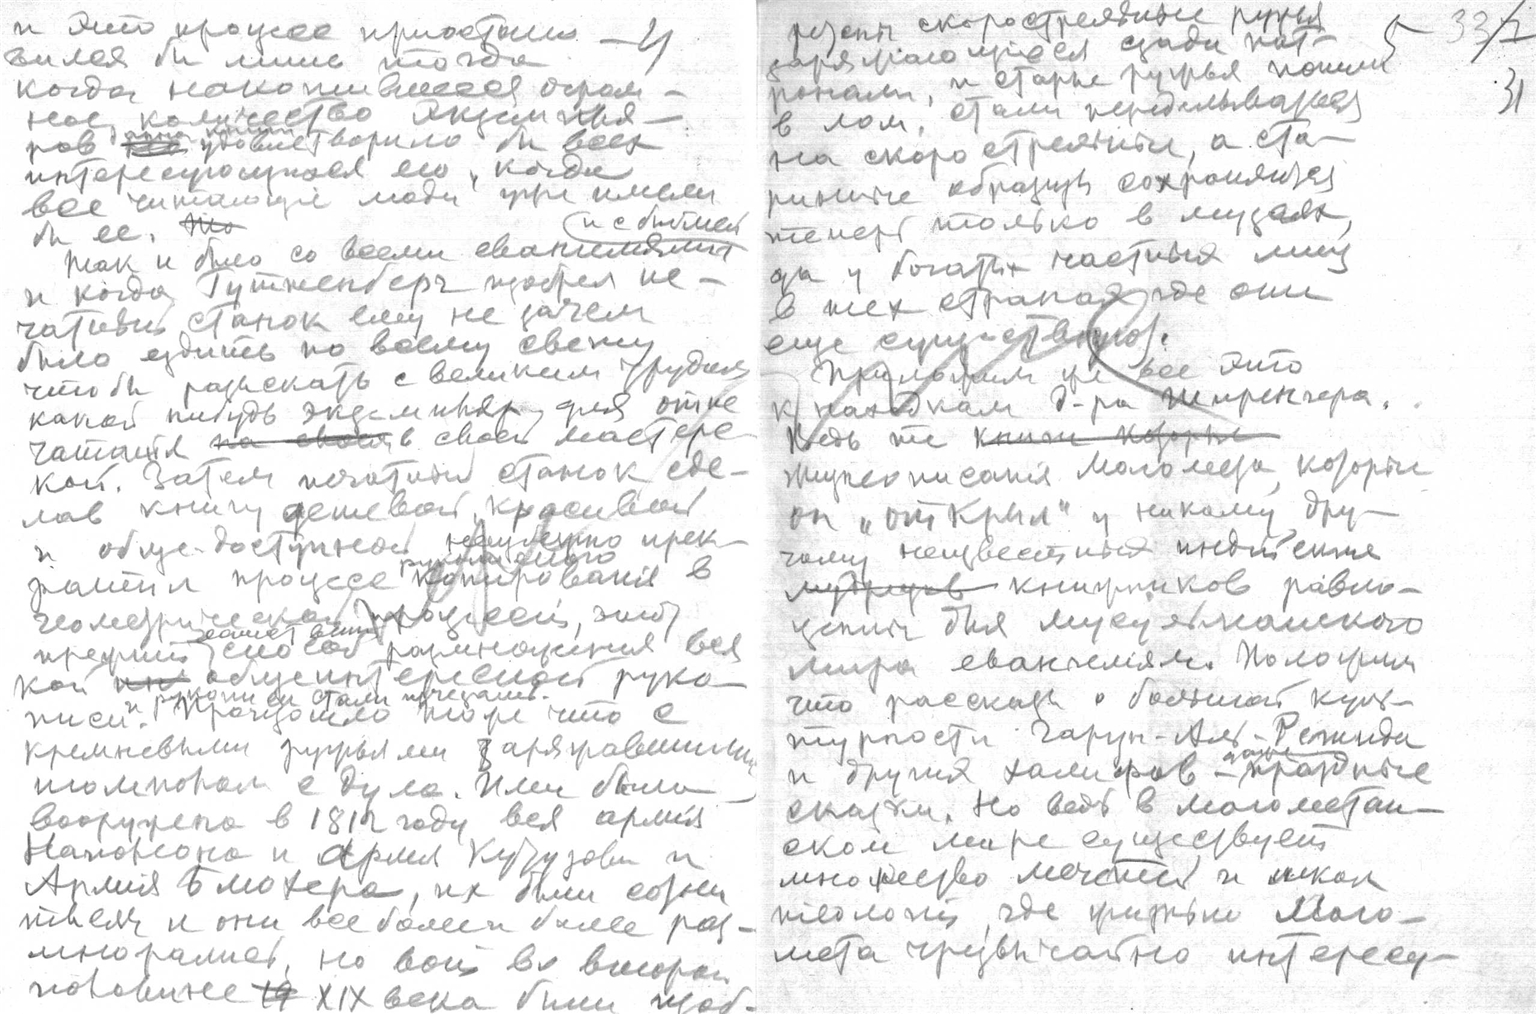 и этот процесс приостано- 4
вился бы лишь тогда
когда накопившееся огром-
ное количество экземпля-
ров данной книги удовлетворило бы всех
интересующихся ею, когда
все читающие люди уже имели
бы ее. То
Так и было со всеми евангелиями и с библией
и когда Гуттенберг изобрел пе-
чатный станок ему не зачем
было ездить по всему свету
чтобы разыскать с великим трудом
какой нибудь экземпляр для отпе
чатания на своей в своей мастерс
кой. Затем печатный станок сде-
лав книгу дешевой, красивой
и обще-доступной немедленно прек-
ратил процесс рукописного копирования в
геометрической прогрессии, этот
прежний способ размножения вся
кой обще интересной руко-
писи. и рукописи стали исчезать. Произошло тоже что с
кремневыми ружьями заряжавшимися
с дула. Ими была
вооружена в 1812 году вся армия
Наполеона и армия Кутузова и
Армия Блюхера, их были сотни
тысяч и они все более и более раз-
множались, но вот во второй
половине XIX века были изоб-
5 33/I
31
ретены скорострельные ружья
заряжающиеся сзади пат-
ронами, и старые ружья пошли
в лом, стали переделываться
на скорострельные, а ста-
ринные образцы сохранились
теперь только в музеях,
да у богатых частных лиц
в тех странах где они
еще существуют.
Приложим же все это
к находкам д-ра Шпренгера.
Ведь те книги которые
жизнеописания Магомета, которые
он „открыл" у никому дру-
гому неизвестных индийских
мудрецов книжников равно-
ценны для мусульманского
мира евангелиям. Положим
что рассказы о большой куль-
турности Гарун-Аль-Рашида
и других халифов - праздные
сказки. Но ведь в магометан-
ском мире существует
множество мечетей и школ
теологии, где житие Маго-
мета чрезвычайно интересу-